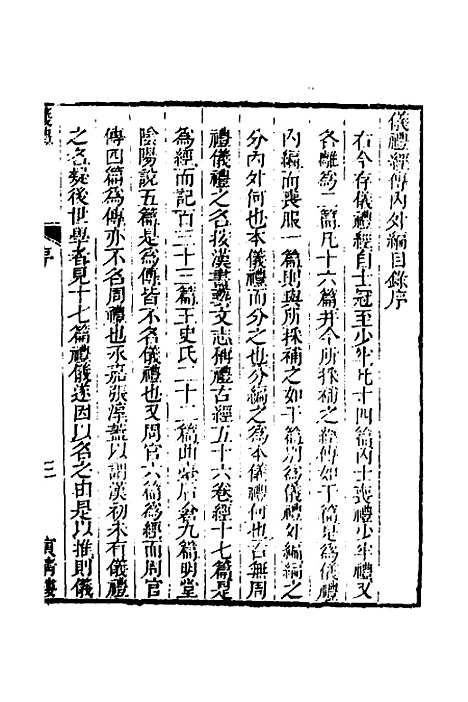 儀禮經傳內外編目錄序
右今存儀禮經自士冠至少牢凡十四篇內士喪禮少牢禮又
各離爲二篇凡十六篇并今所採補之經傳如干篇是爲儀禮
內編而喪服一篇則與所採補之如干篇別爲儀禮外編編之
分內外何也本儀禮而分之也分編之爲本儀禮何也古無周
禮儀禮之名按漢書藝文志稱禮古經五十六卷經十七篇是
爲經而記百三十三篇王史氏二十一篇曲臺后蒼九篇明堂
陰陽說五篇是爲傳皆不名儀禮也又周官六篇爲經而周官
傳四篇爲傳亦不名周禮也永嘉張淳蓋以謂漢初未有儀禮
之名疑後世學者見十七篇禮儀遂因以名之由是以推則儀
儀禮 序 三